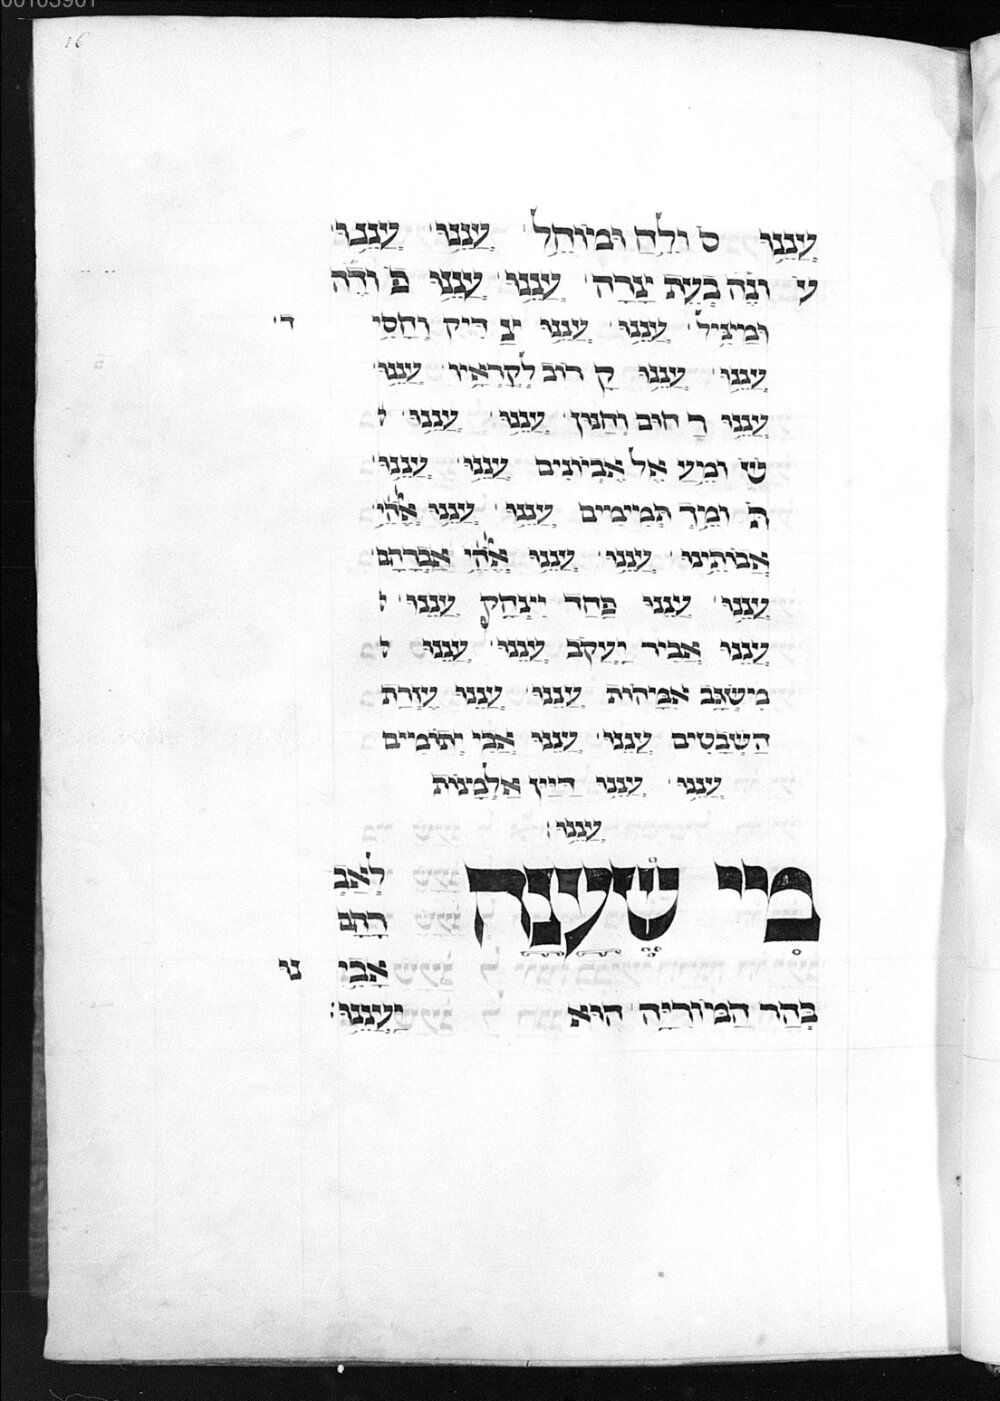 00103901
16
עֲנֵנוּ ס וֹלֵחַ וּמוֹחֵל עֲנֵנוּ עֲנֵנוּ
ע וֹנֶה בְּעֵת צָרָה עֲנֵנוּ עֲנֵנוּ פ וֹדֶה
וּמַצִּיל עֲנֵנוּ עֲנֵנוּ צַ דִּיק וְחָסִי ד
עֲנֵנוּ עֲנֵנוּ קָ רוֹב לְקֹרְאָיו עֲנֵנוּ
עֲנֵנוּ רַ חוּם וְחַנּוּן עֲנֵנוּ עֲנֵנוּ
שׁ וֹמֵעַ אֶל אֶבְיוֹנִים עֲנֵנוּ עֲנֵנוּ
תּ וֹמֵךְ תְּמִימִים עֲנֵנוּ עֲנֵנוּ אֱלֹהֵי
אֲבוֹתֵינוּ עֲנֵנוּ עֲנֵנוּ אֱלֹהֵי אַבְרָהָם
עֲנֵנוּ עֲנֵנוּ פַּחַד יִצְחָק עֲנֵנוּ
עֲנֵנוּ אֲבִיר יַעֲקֹב עֲנֵנוּ עֲנֵנוּ
מִשְׂגַּב אִמָּהוֹת עֲנֵנוּ עֲנֵנוּ עֶזְרַת
הַשְּׁבָטִים עֲנֵנוּ עֲנֵנוּ אֲבִי יְתוֹמִים
עֲנֵנוּ עֲנֵנוּ דַּיַּין אַלְמָנוֹת
עֲנֵנוּ׃
מִי שֶׁעָנָה לְאַבְ
רָהָם
אָבִי נוּ
בְּהַר הַמּוֹרִיָּה הוּא יַעֲנֵנוּ׃